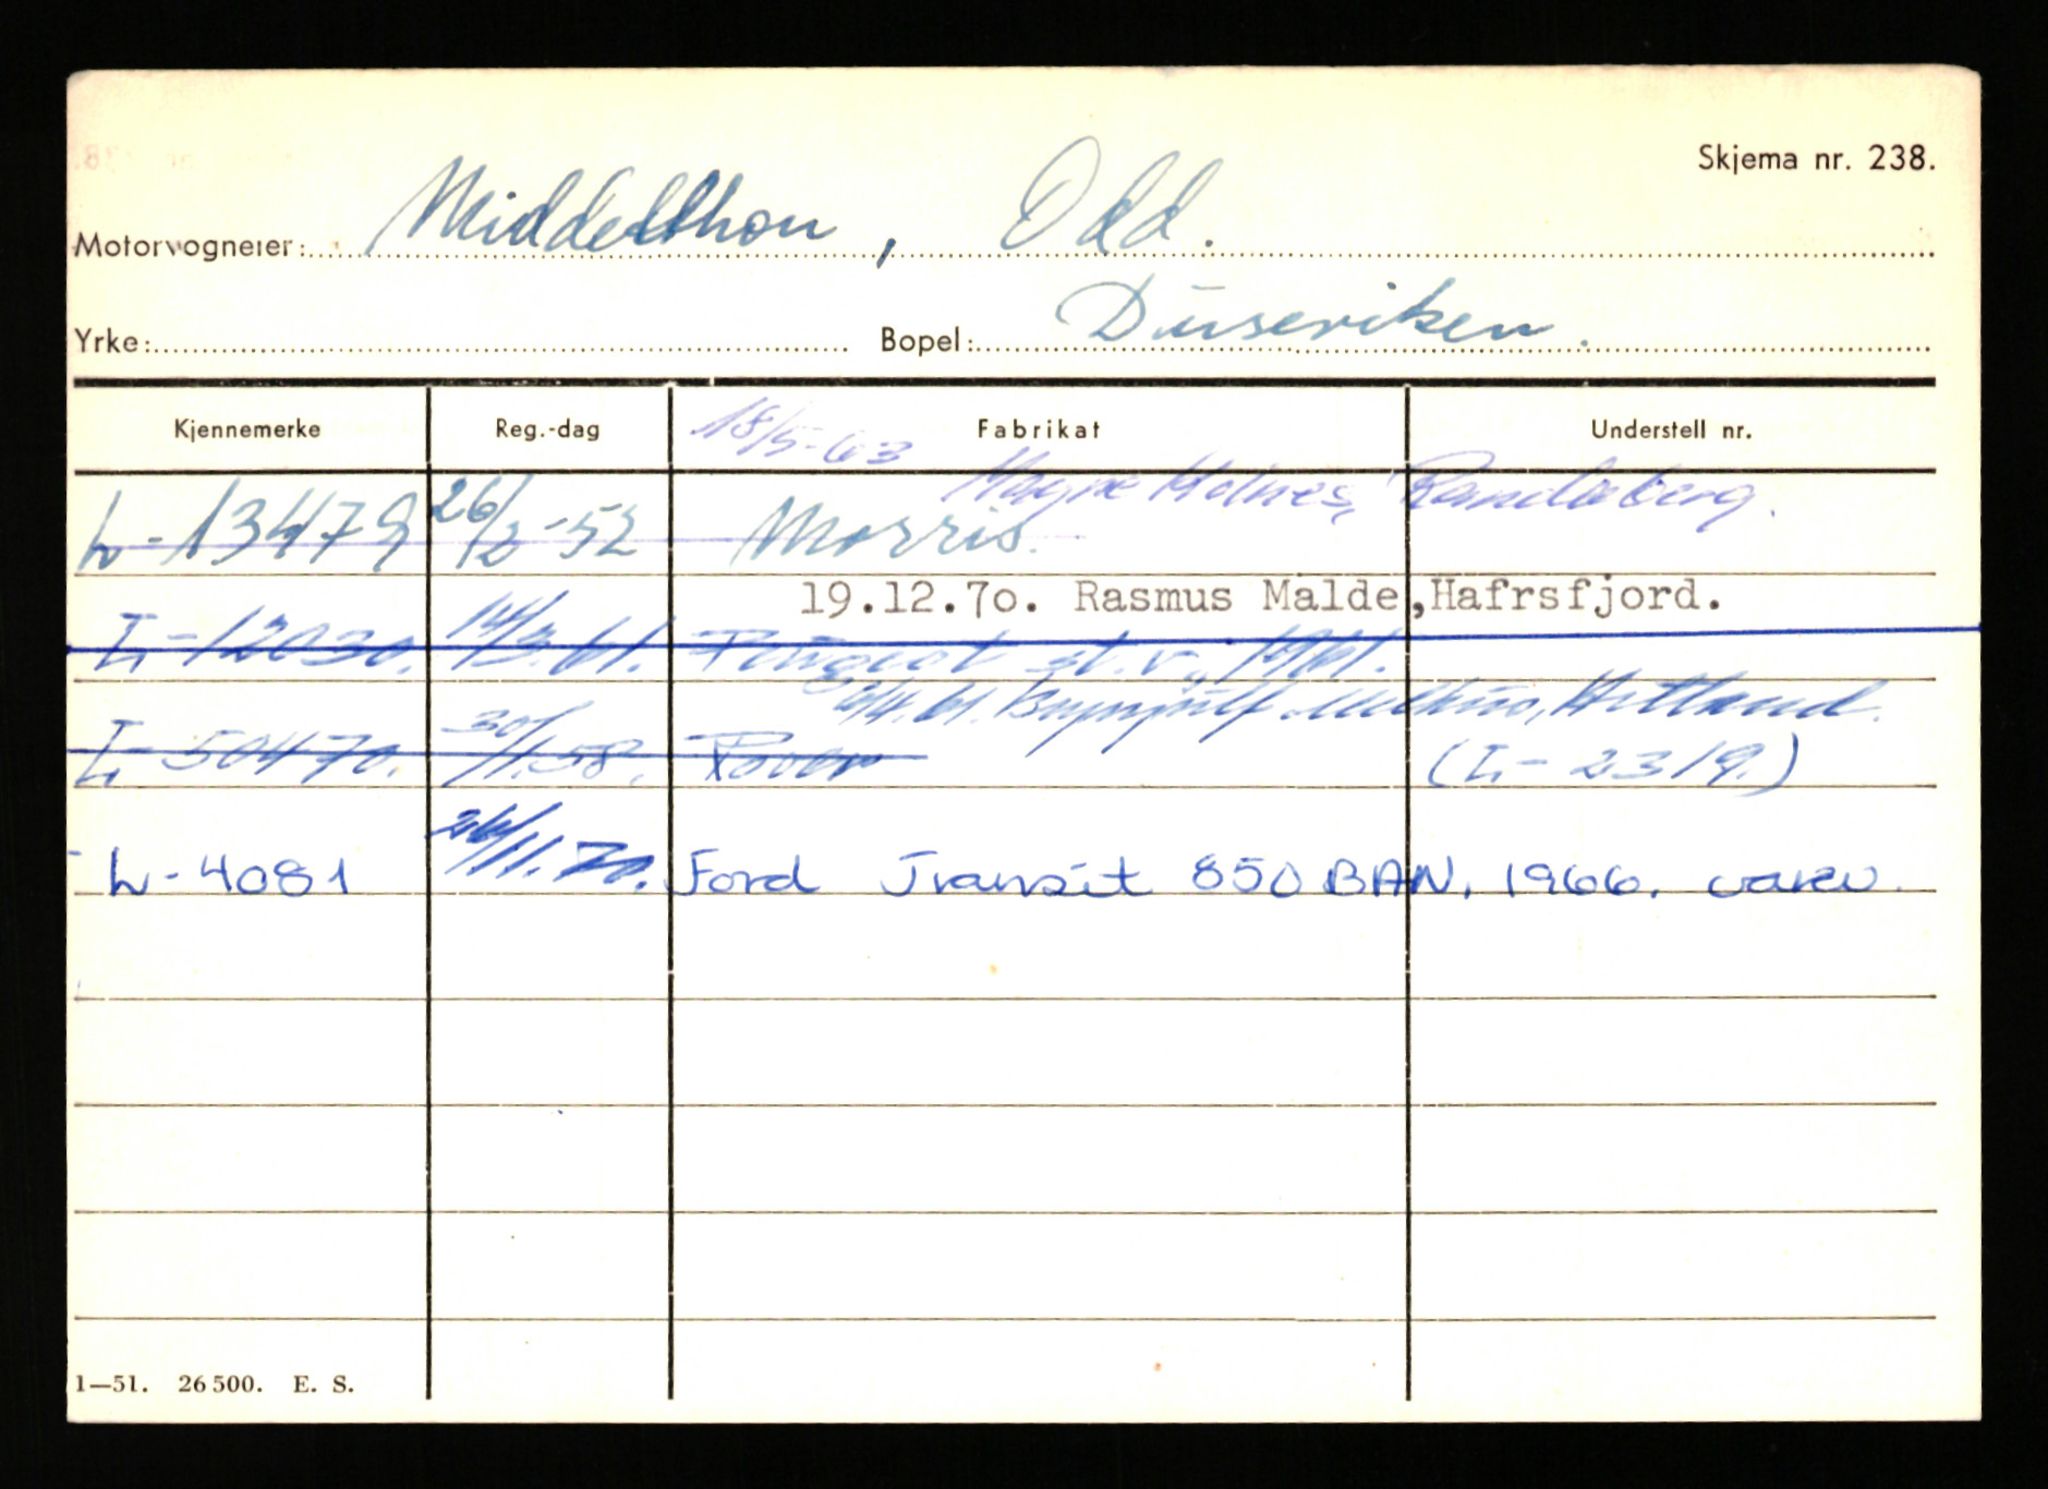 Skjema nr. 238.
Motorvogneier: Middelthon, Odd.
Yrke: Bopel: Duseviken.
Kjennemerke Reg.-dag Fabrikat Understell nr.
18/5-63 Magne Holnes, Randaberg.
L-13479 26/2-52 Morris.
19.12.70. Rasmus Malde, Hafrsfjord.
L-12030. 14/3.61. Peugeot st.v., 1961.
/4.61. Brynjulf Melhus, Hetland.
L-50470. 30/1.58. Rover (L-2319.)
L-4081 26/11.70. Ford Transit 850 BAN. 1966. varev.
1—51. 26500. E. S.